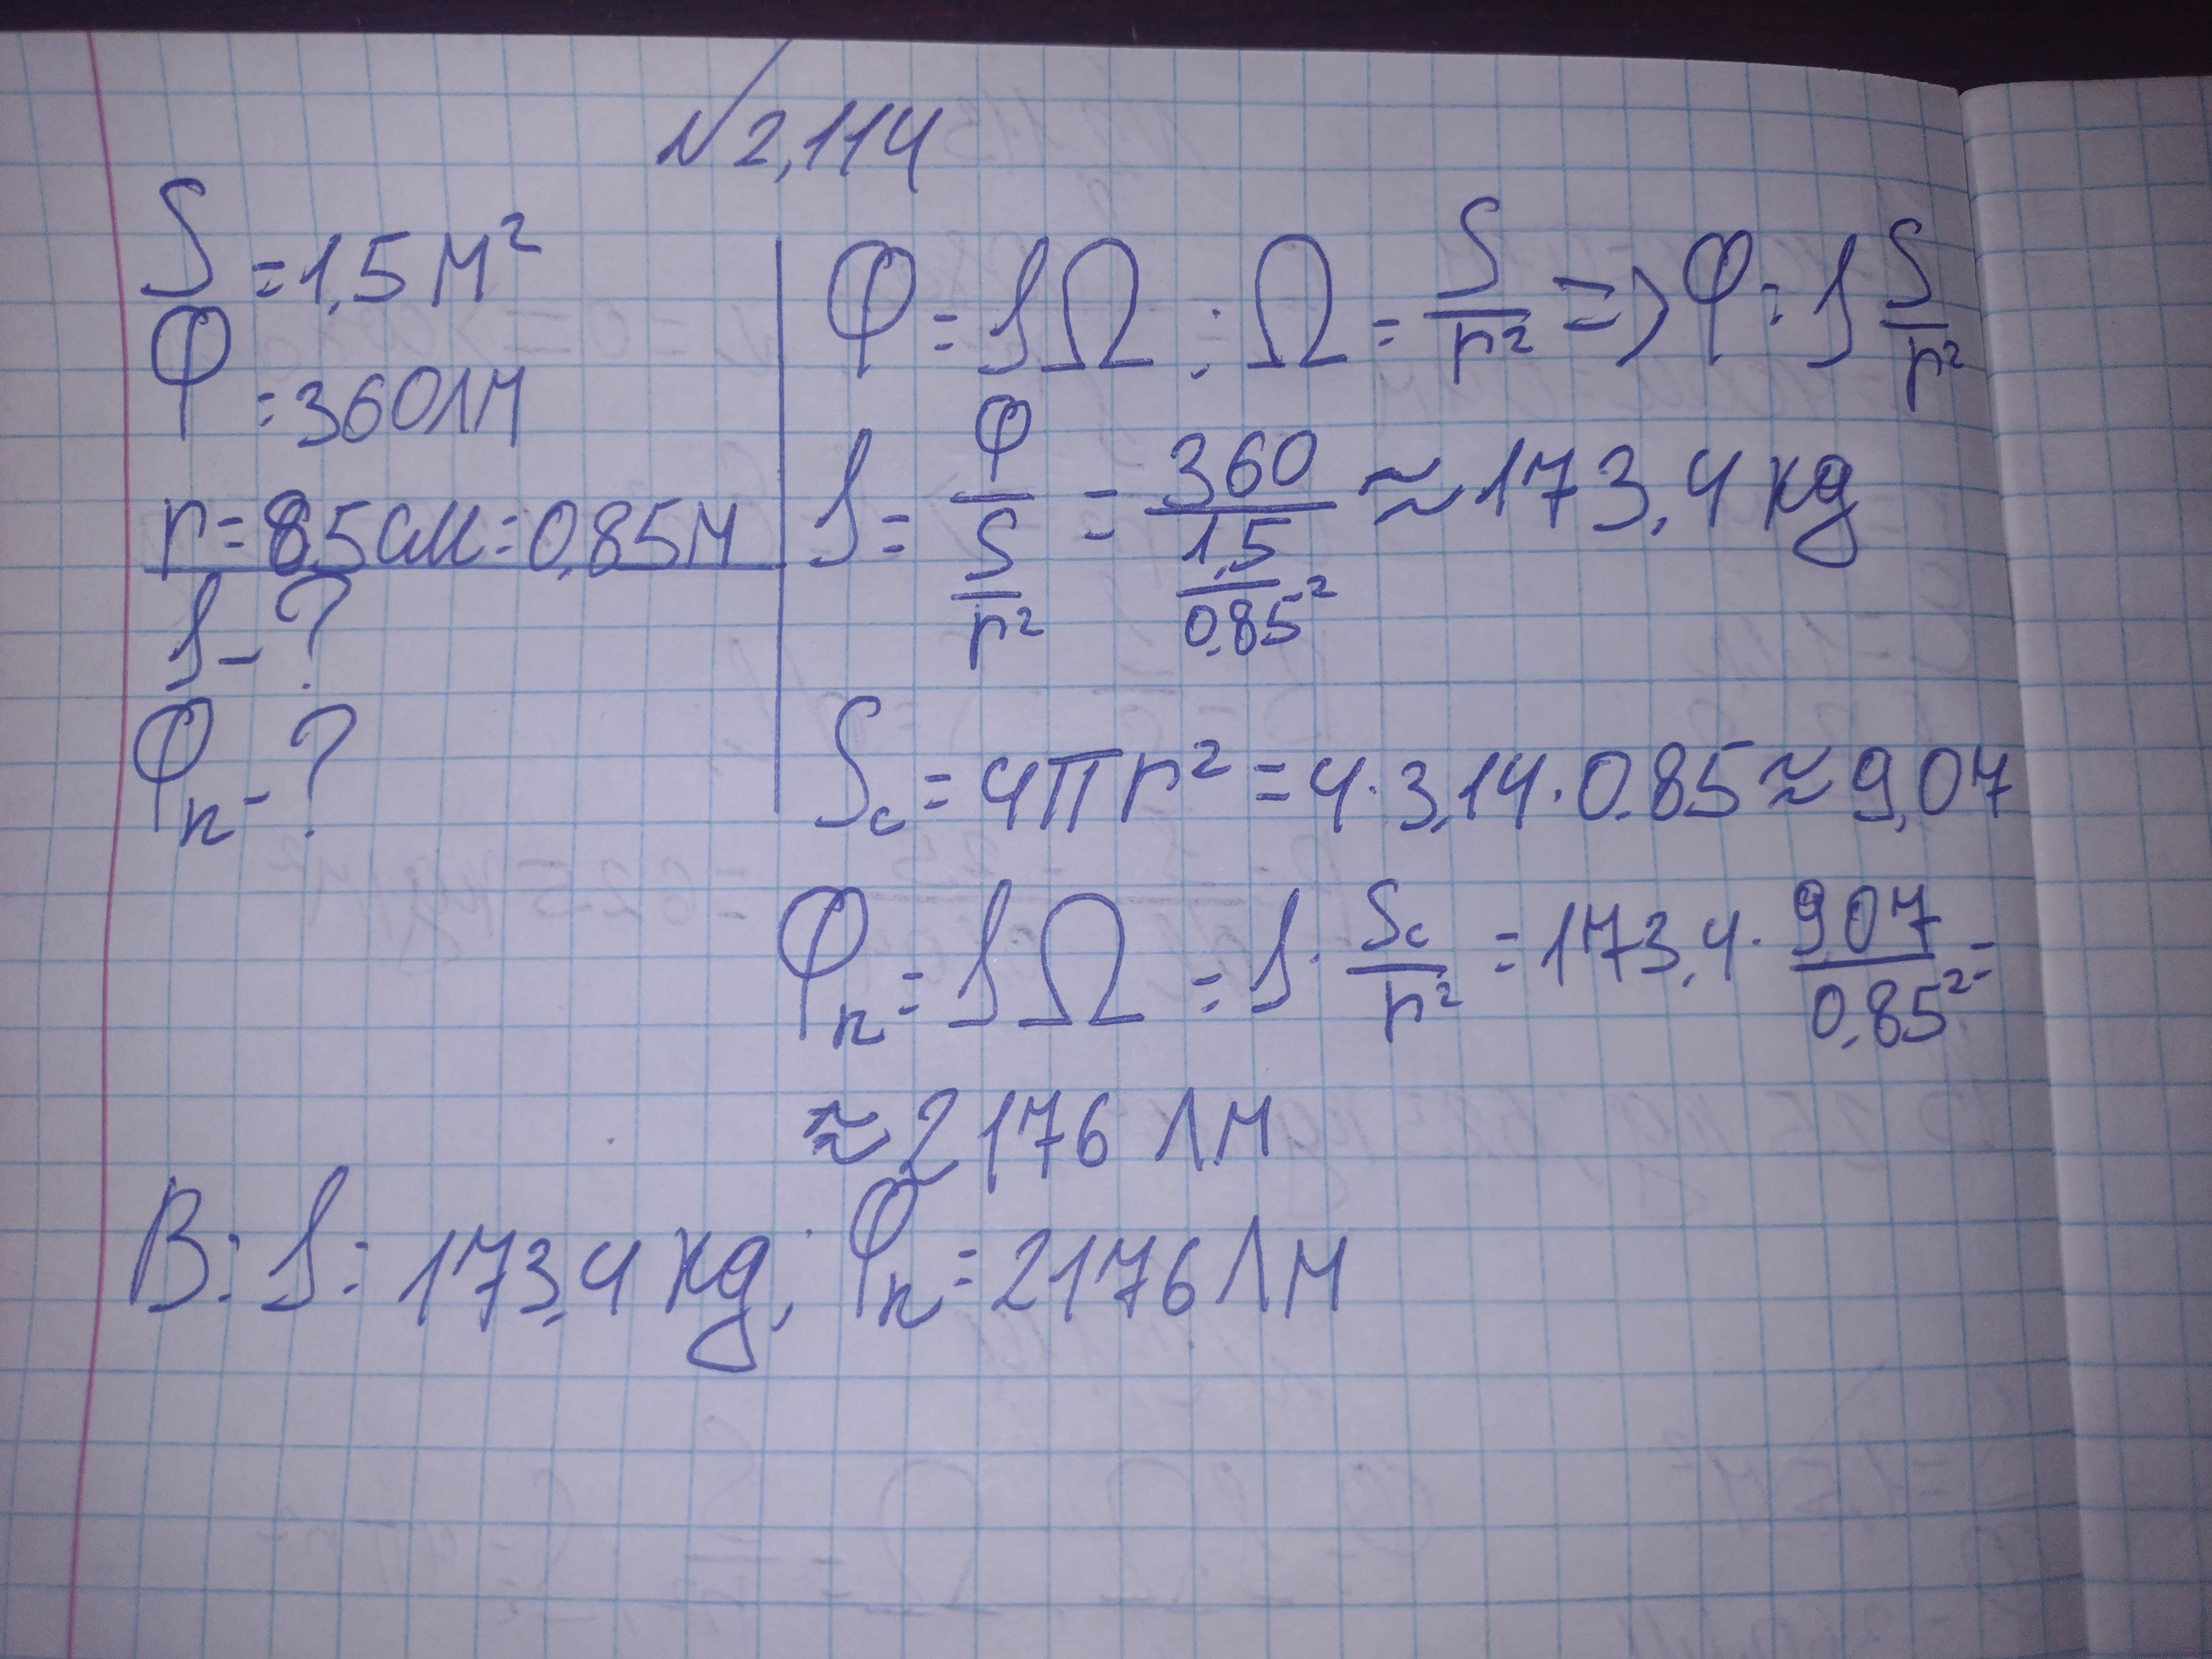 №2,114
S = 1,5 м²
Φ = 360лм
r = 85см = 0,85м
I - ?
Φₙ - ?
Φ = IΩ ; Ω = S/r² => Φ = I S/r²
I = Φ/(S/r²) = 360/(1,5/0,85²) ≈ 173,4 кд
Sc = 4πr² = 4·3,14·0,85 ≈ 9,07
Φₙ = IΩ = I · Sc/r² = 173,4 · 9,07/0,85² =
≈ 2176 лм
В: I = 173,4 кд; Φₙ = 2176 лм